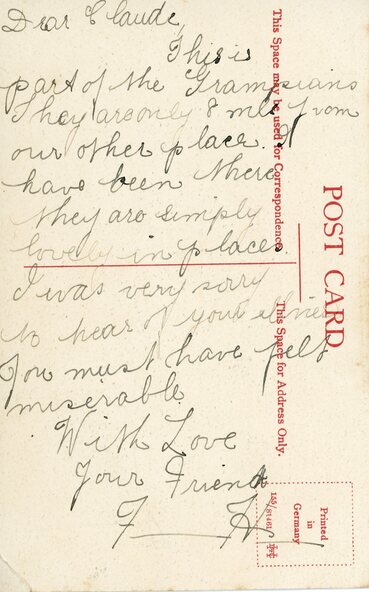 Dear Claude,
This is
part of the Grampians
They are only 8 mls from
our other place. I
have been there
they are simply
lovely in places.
I was very sorry
to hear of your illness
You must have felt
miserable
With Love
Your Friend
F____ H____
This Space may be used for Correspondence.
POST CARD
This Space for Address Only.
Printed
in
Germany